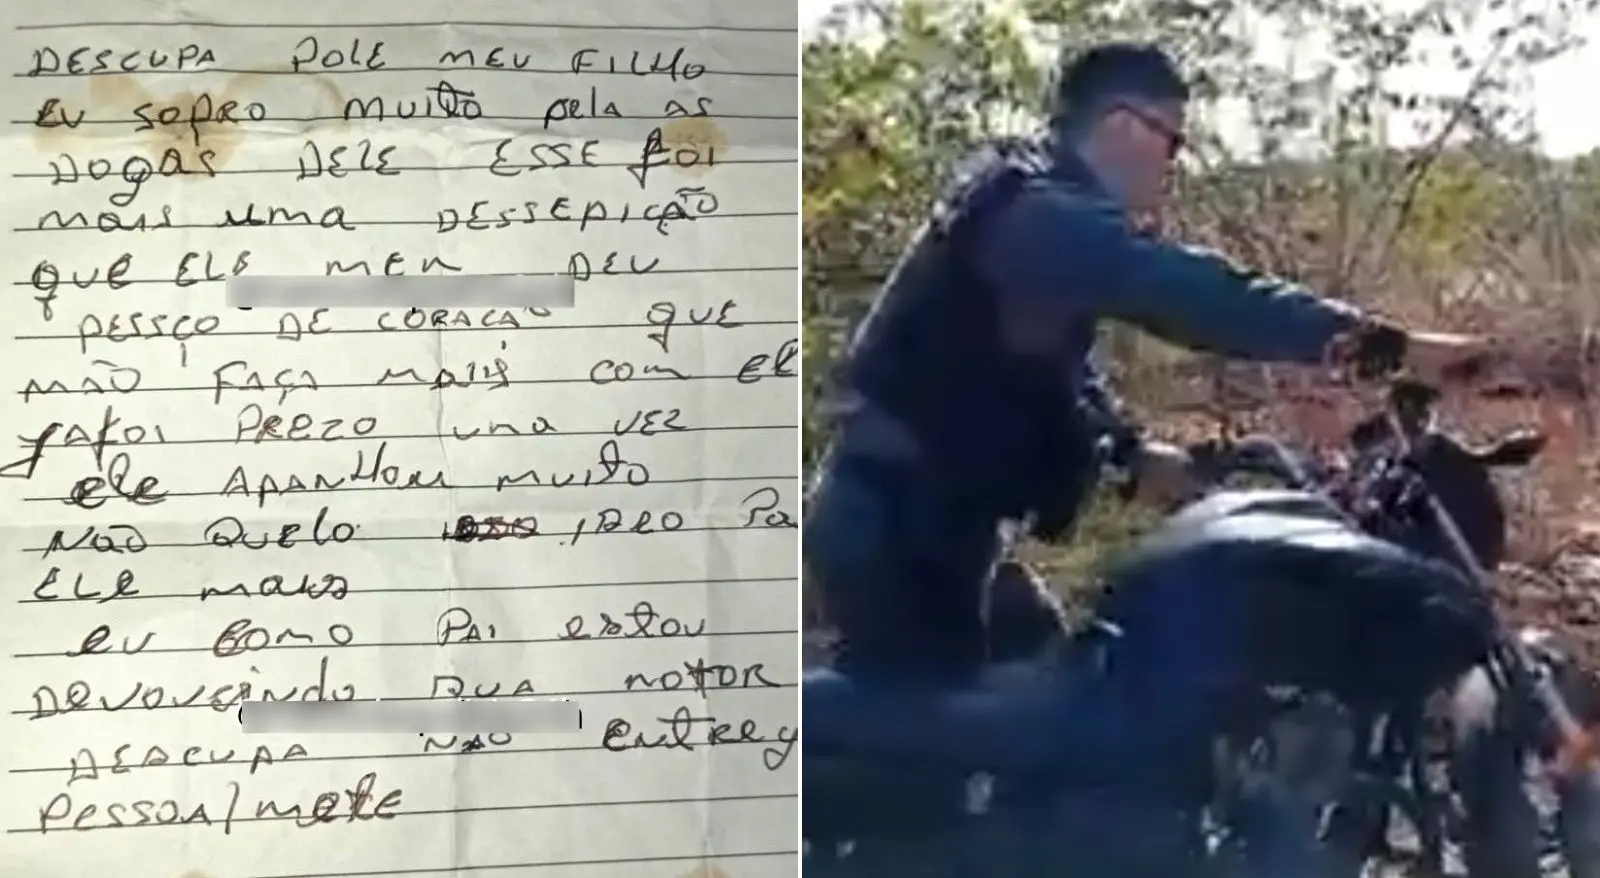 DESCUPA POLE MEU FILHO
EU SOPRO MUITO pela AS
DOGAS DELE ESSE FOI
MAIS uma DESSEPICÃO
QUE ELE MEU DEU
PESSÇO DE CORAÇAO QUE
MÃO FAÇA MAIS COM EL
JAFOI PREZO UMA VEZ
ele APANHOU MUITO
NÃO QUELO ,DEO Pa
ELE MAIS
EU COMO PAI estou
DEVOUVEINDO SUA MOTOR
DEACUPA NÃO entreg
PESSOA/mete